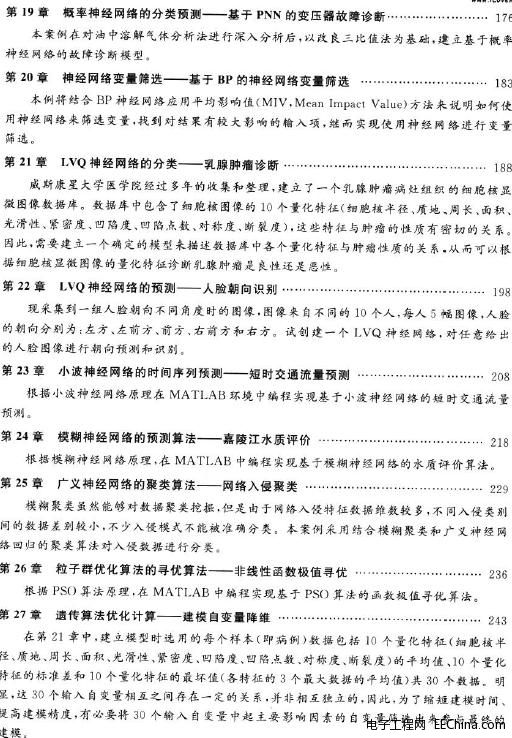 第 19 章 概率神经网络的分类预测——基于 PNN 的变压器故障诊断 176
本案例在对油中溶解气体分析法进行深入分析后,以改良三比值法为基础,建立基于概率
神经网络的故障诊断模型。
第 20 章 神经网络变量筛选——基于 BP 的神经网络变量筛选 183
本例将结合 BP 神经网络应用平均影响值(MIV,Mean Impact Value)方法来说明如何使
用神经网络来筛选变量,找到对结果有较大影响的输入项,继而实现使用神经网络进行变量
筛选。
第 21 章 LVQ 神经网络的分类——乳腺肿瘤诊断 188
威斯康星大学医学院经过多年的收集和整理,建立了一个乳腺肿瘤病灶组织的细胞核显
微图像数据库。数据库中包含了细胞核图像的 10 个量化特征(细胞核半径、质地、周长、面积、
光滑性、紧密度、凹陷度、凹陷点数、对称度、断裂度),这些特征与肿瘤的性质有密切的关系。
因此,需要建立一个确定的模型来描述数据库中各个量化特征与肿瘤性质的关系,从而可以根
据细胞核显微图像的量化特征诊断乳腺肿瘤是良性还是恶性。
第 22 章 LVQ 神经网络的预测——人脸朝向识别 198
现采集到一组人脸朝向不同角度时的图像,图像来自不同的 10 个人,每人 5 幅图像,人脸
的朝向分别为:左方、左前方、前方、右前方和右方。试创建一个 LVQ 神经网络,对任意给出
的人脸图像进行朝向预测和识别。
第 23 章 小波神经网络的时间序列预测——短时交通流量预测 208
根据小波神经网络原理在 MATLAB 环境中编程实现基于小波神经网络的短时交通流量
预测。
第 24 章 模糊神经网络的预测算法——嘉陵江水质评价 218
根据模糊神经网络原理,在 MATLAB 中编程实现基于模糊神经网络的水质评价算法。
第 25 章 广义神经网络的聚类算法——网络入侵聚类 229
模糊聚类虽然能够对数据聚类挖掘,但是由于网络入侵特征数据维数较多,不同入侵类别
间的数据差别较小,不少入侵模式不能被准确分类。本案例采用结合模糊聚类和广义神经网
络回归的聚类算法对入侵数据进行分类。
第 26 章 粒子群优化算法的寻优算法——非线性函数极值寻优 236
根据 PSO 算法原理,在 MATLAB 中编程实现基于 PSO 算法的函数极值寻优算法。
第 27 章 遗传算法优化计算——建模自变量降维 243
在第 21 章中,建立模型时选用的每个样本(即病例)数据包括 10 个量化特征(细胞核半
径、质地、周长、面积、光滑性、紧密度、凹陷度、凹陷点数、对称度、断裂度)的平均值、10 个量化
特征的标准差和 10 个量化特征的最坏值(各特征的 3 个最大数据的平均值)共 30 个数据。明
显,这 30 个输入自变量相互之间存在一定的关系,并非相互独立的,因此,为了缩短建模时间、
提高建模精度,有必要将 30 个输入自变量中起主要影响因素的自变量筛选出来参与最终的
建模。
电子工程网 EEChina.com